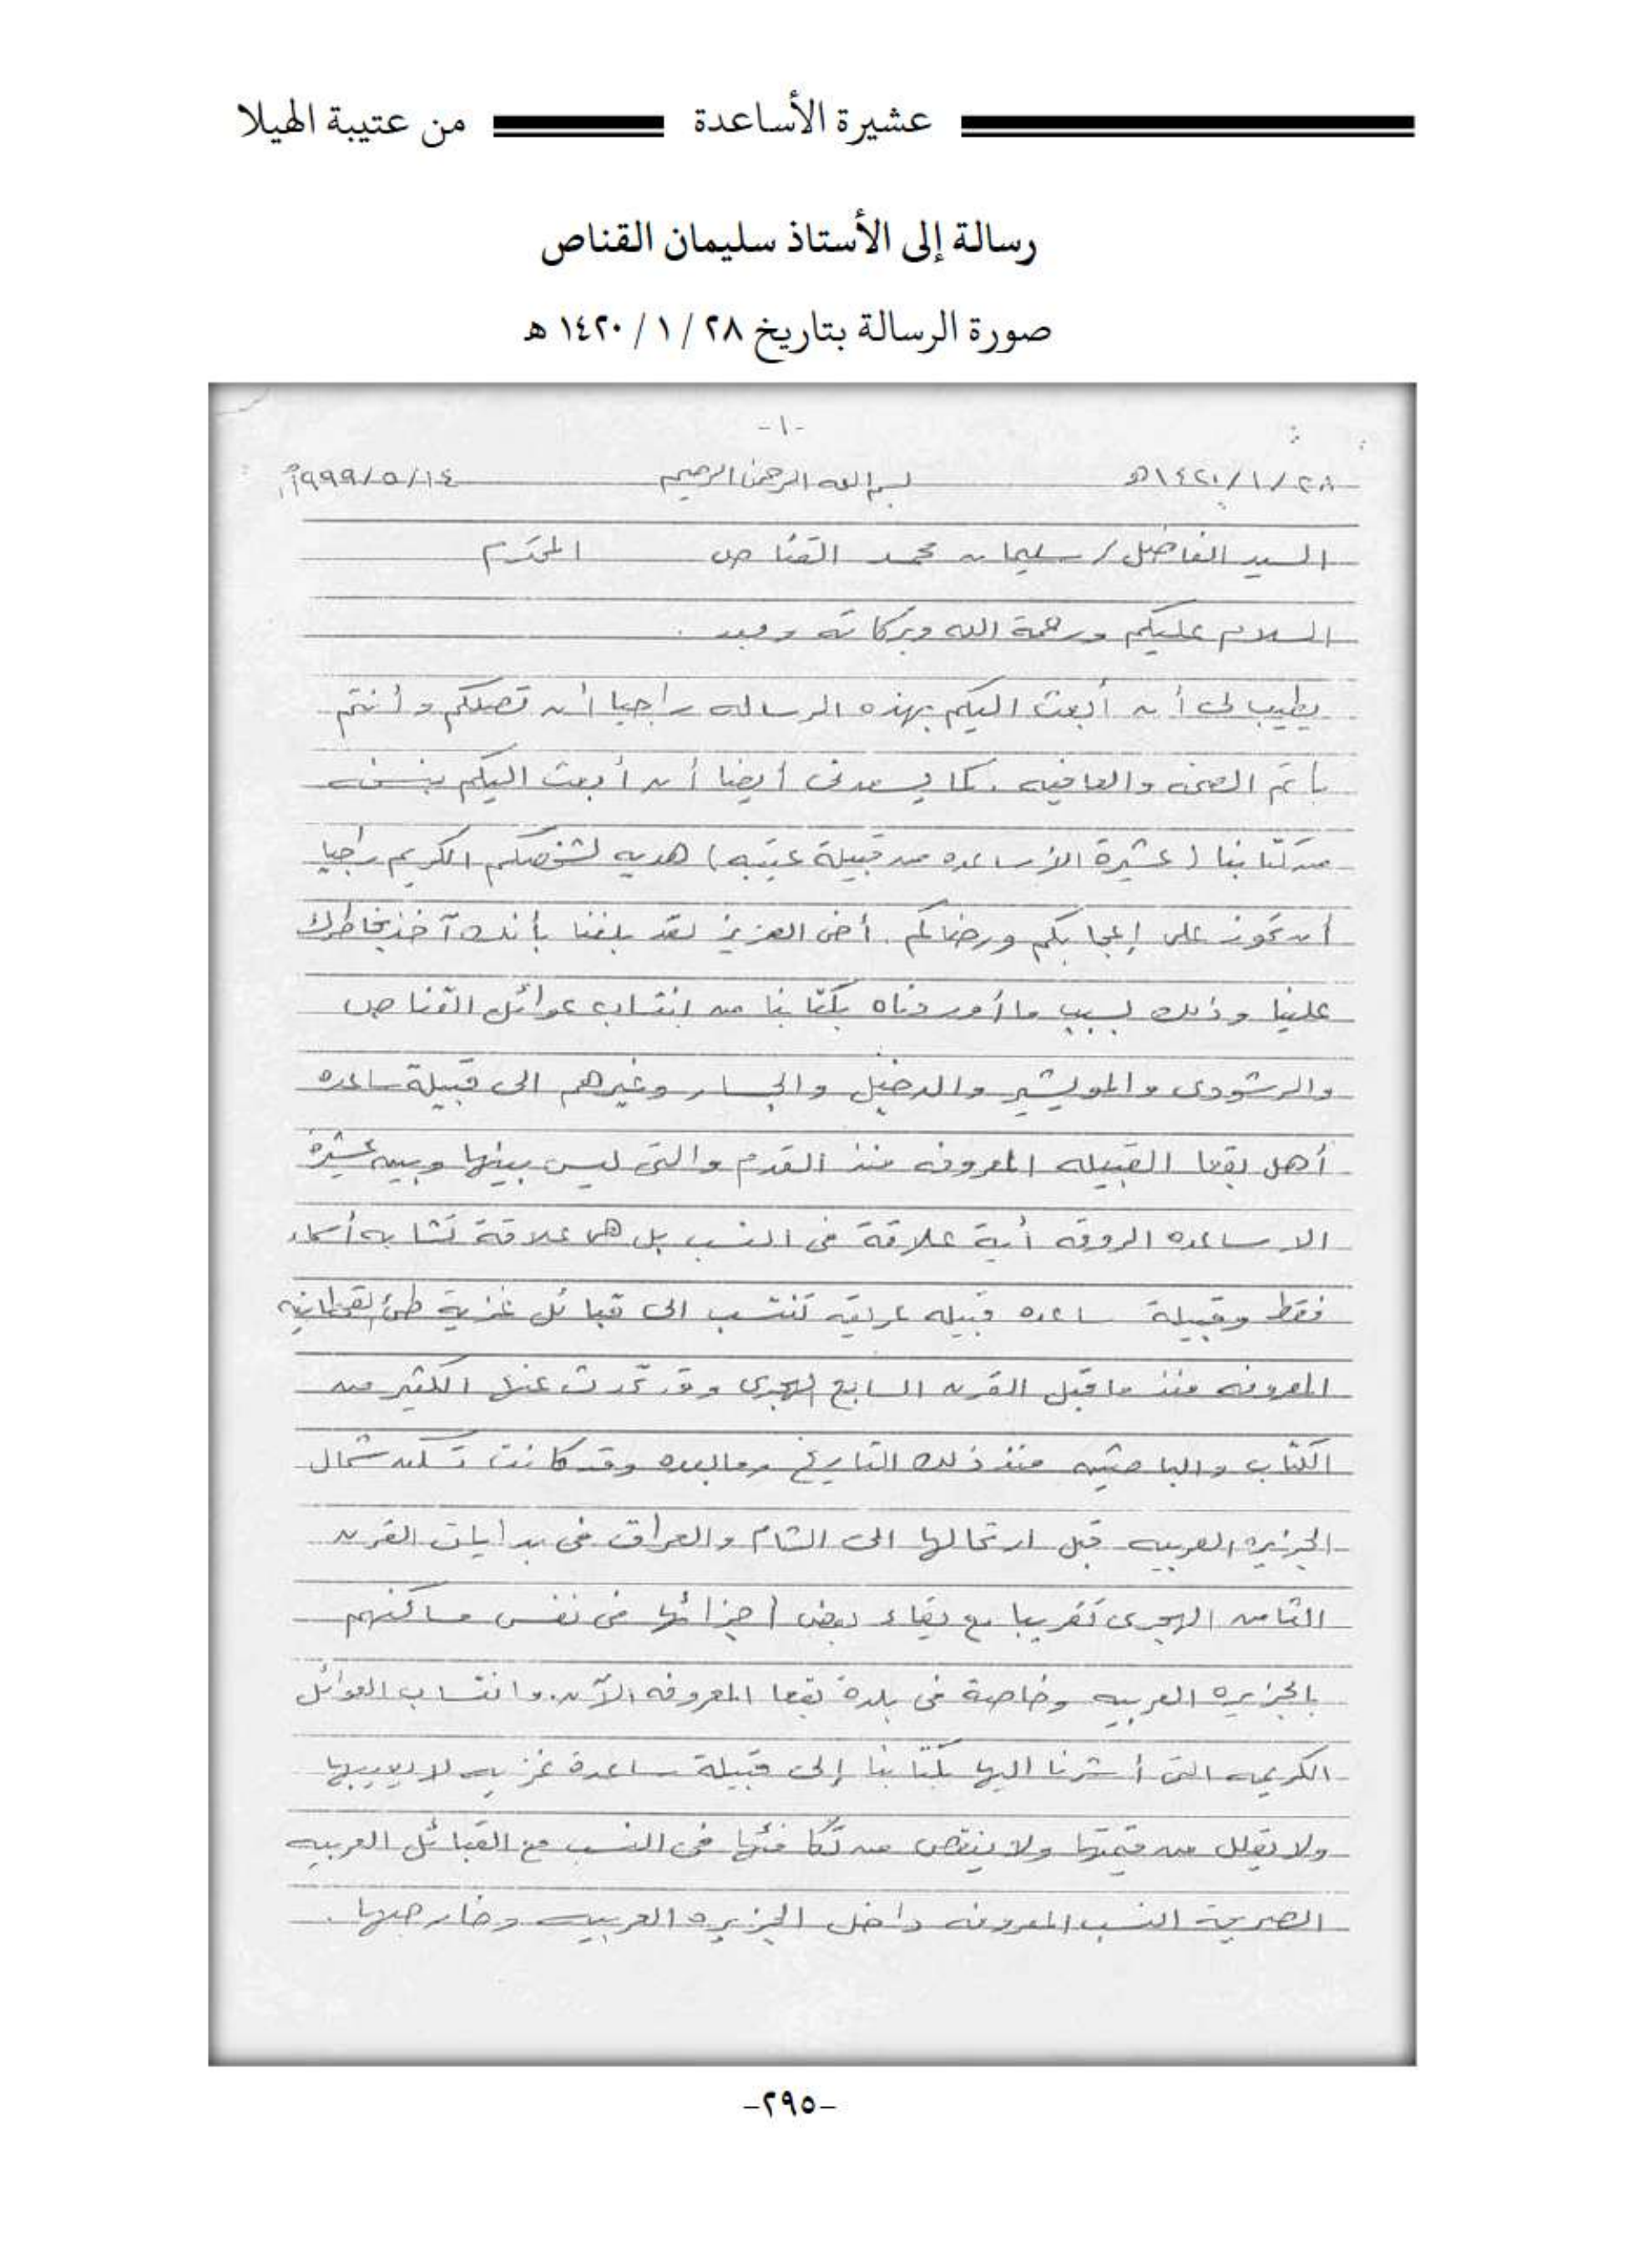 عشيرة الأساعدة من عتيبة الهيلا
رسالة إلى الأستاذ سليمان القناص
صورة الرسالة بتاريخ ٢٨ / ١ / ١٤٢٠ هـ
-١-
٢٨/١/١٤٢٠هـ بسم الله الرحمن الرحيم ١٤/٥/١٩٩٩م
السيد الفاضل / سليمان محمد القناص المحترم
السلام عليكم ورحمة الله وبركاته وبعد .
يطيب لى أن أبعث اليكم بهذه الرساله راجيا أن تصلكم وأنتم
بأتم الصحه والعافيه . كما يسعدنى أيضا أن أبعث اليكم بنسخه
من كتابنا ( عشيرة الأساعده من قبيلة عتيبه ) هديه لشخصكم الكريم راجيا
أن تحوز على إعجابكم ورضاكم . أخى العزيز لقد بلغنا بأنك آخذ بخاطرك
علينا وذلك بسبب ما أوردناه بكتابنا من انتساب عوائل القناص
والرشودى والمويشير والدخيل والجسار وغيرهم الى قبيلة ساعده
أهل بقعا القبيله المعروفه منذ القدم والتى ليس بينها وبين عشيرة
الاساعده الروقه أية علاقة فى النسب بل هى علاقة تشابه أسماء
فقط وقبيلة ساعده قبيله عريقه تنتسب الى قبائل غزية طئ القحطانيه
المعروفه منذ ما قبل القرن السابع الهجرى وقد تحدث عنها الكثير من
الكتاب والباحثين منذ ذلك التاريخ وما بعده وقد كانت تسكن شمال
الجزيره العربيه قبل ارتحالها الى الشام والعراق فى بدايات القرن
الثامن الهجرى تقريبا مع بقاء بعض اجزائها فى نفس مساكنهم
بالجزيره العربيه وخاصة فى بلدة بقعا المعروفه الآن . وانتساب العوائل
الكريمه التى أشرنا اليها بكتابنا إلى قبيلة ساعدة غزيه لا يعيبها
ولا يقلل من قيمتها ولا ينتقص من تكافئها فى النسب مع القبائل العربيه
الصريحة النسب المعروفه داخل الجزيره العربيه وخارجها .
-٢٩٥-